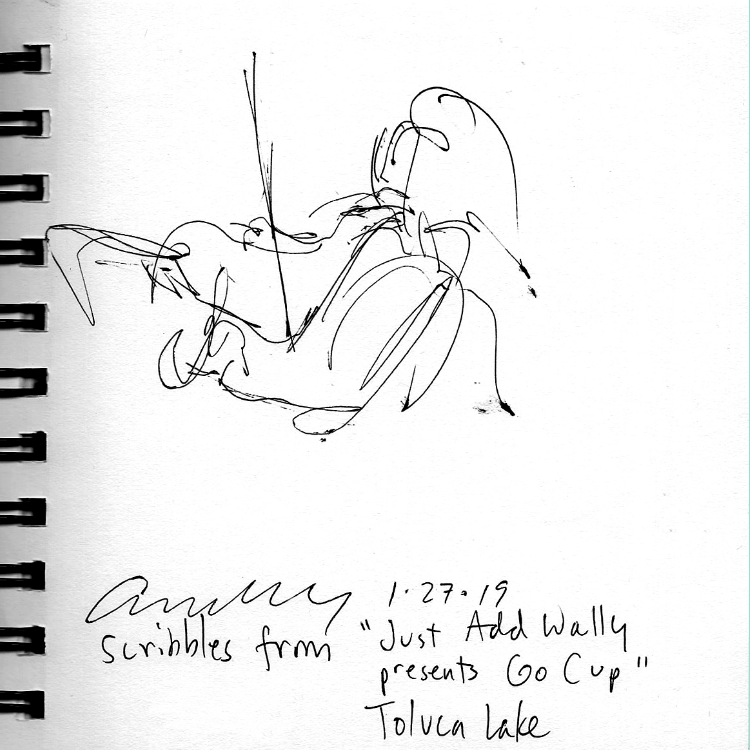 1.27.19
Scribbles from "Just Add Wally
presents Go Cup"
Toluca Lake